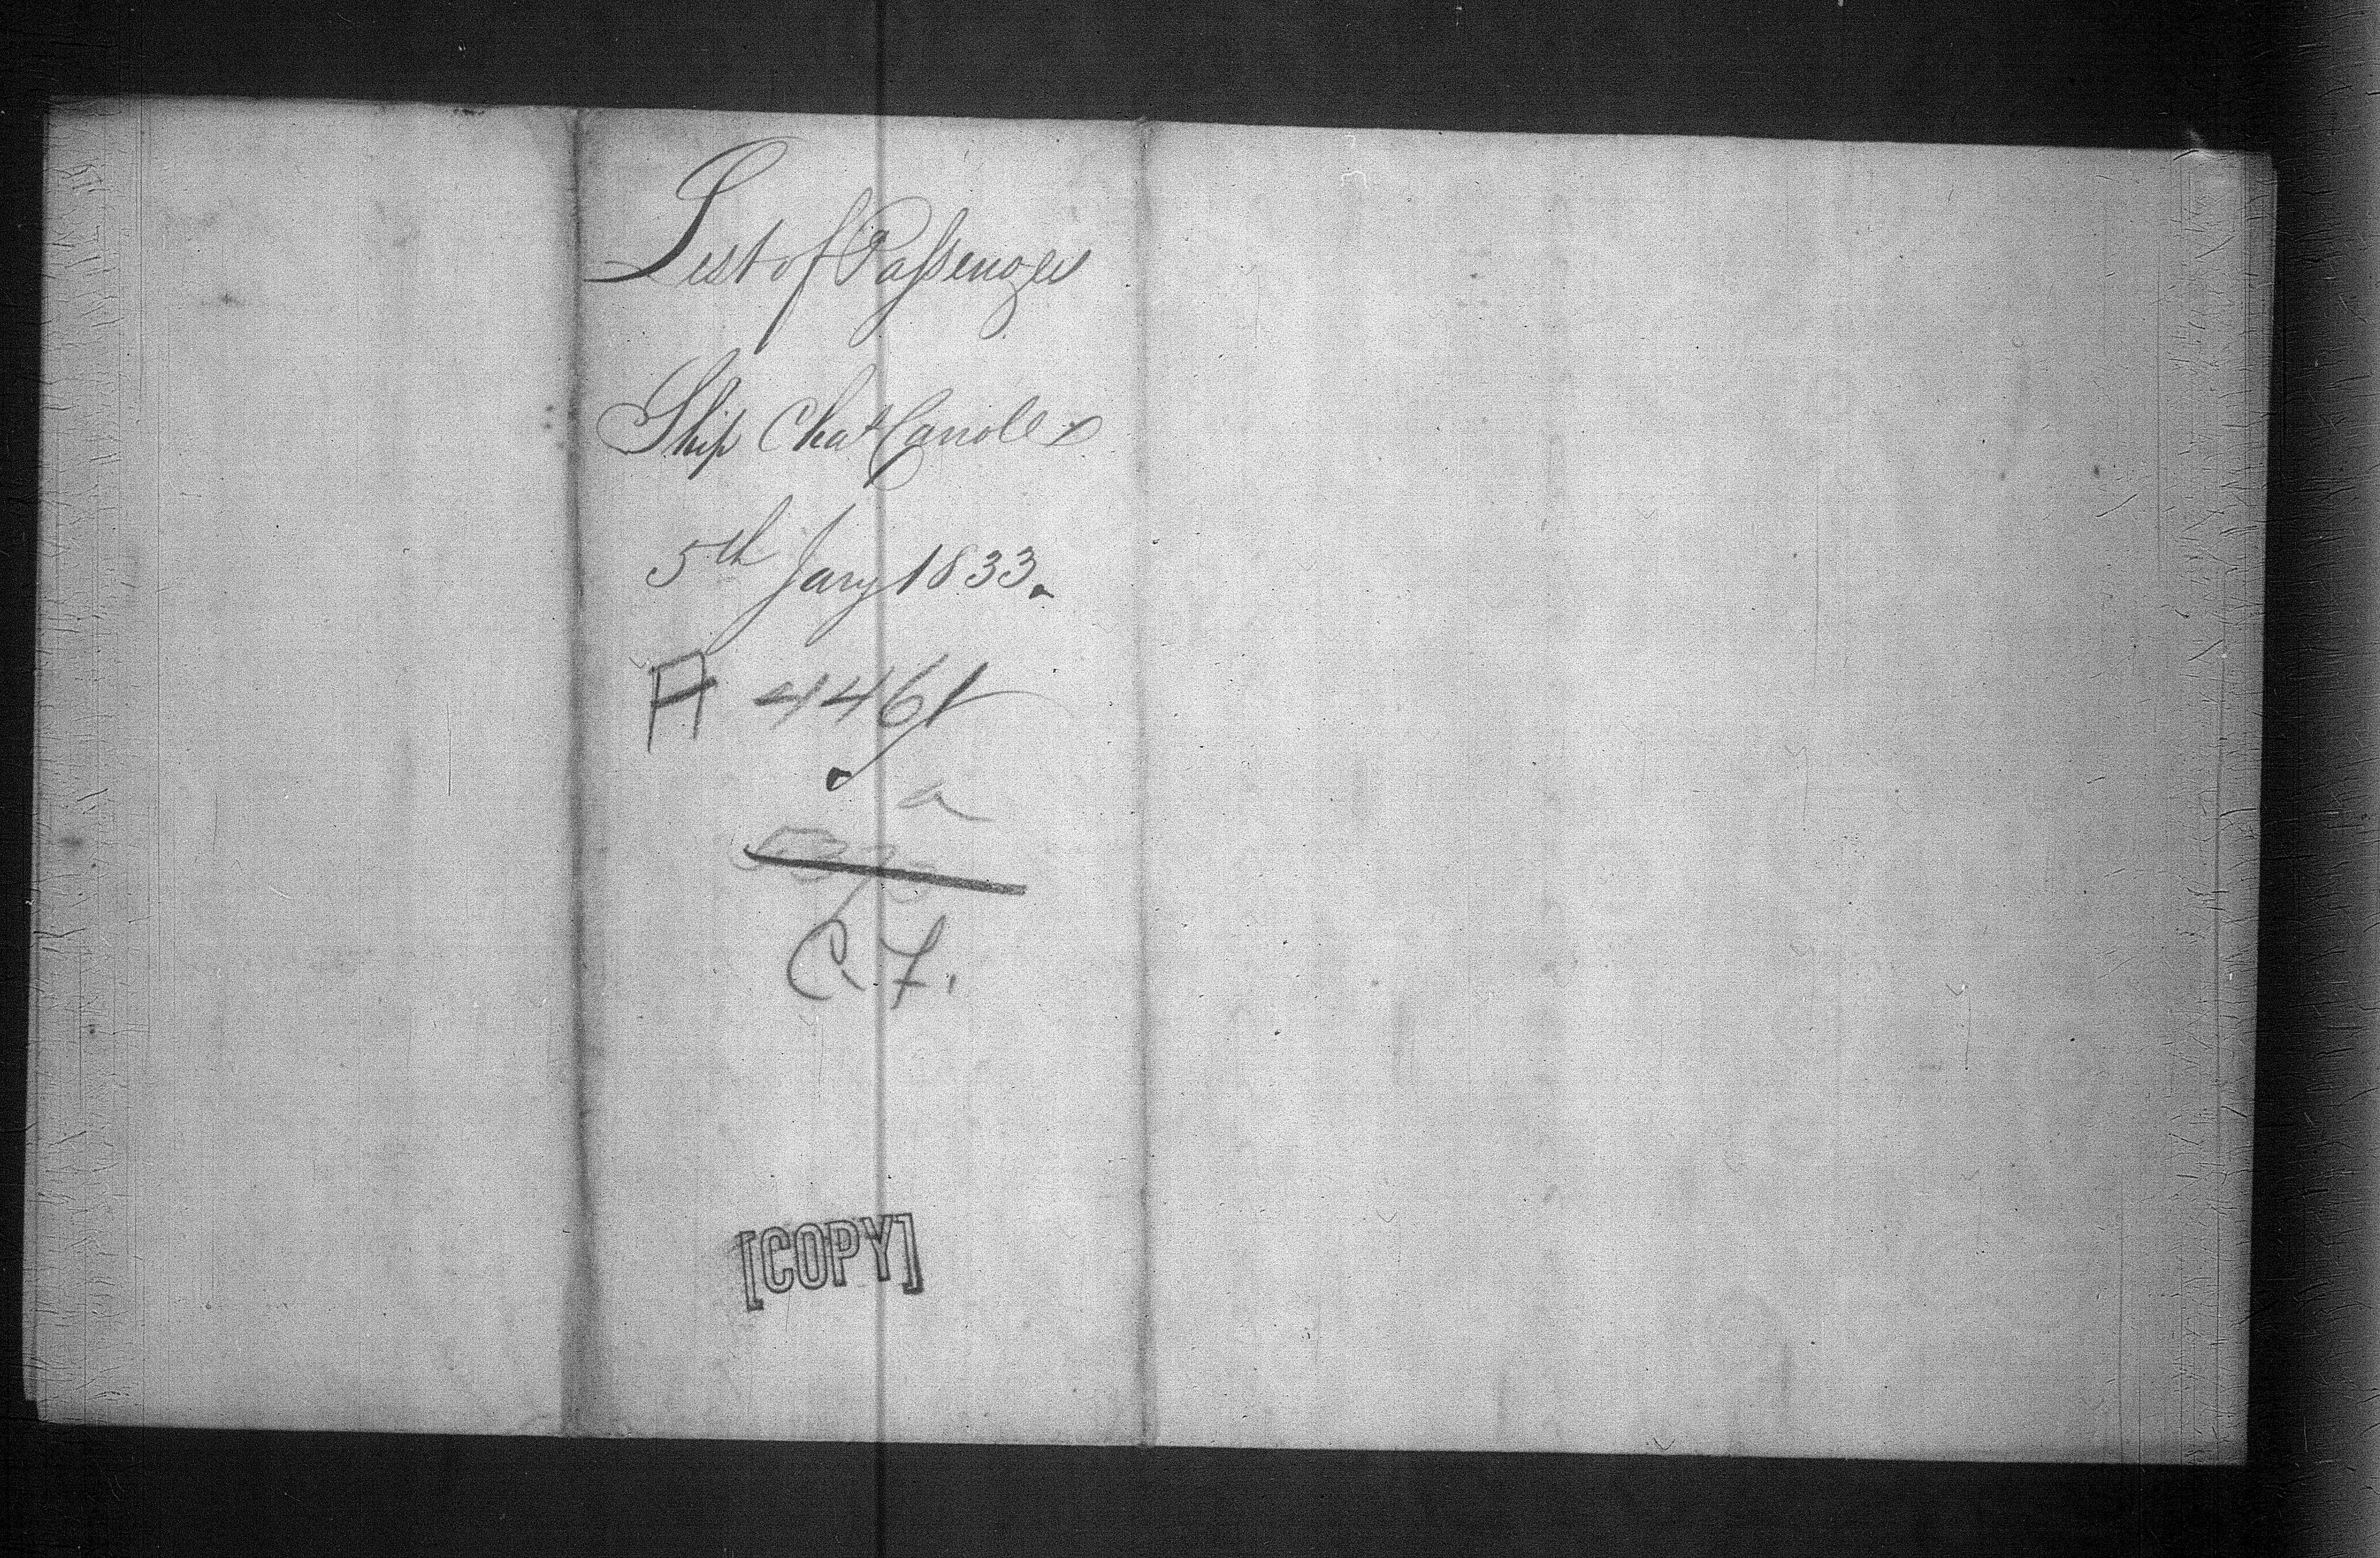 List of Passenger
Ship Chas Carroll
5th Jany 1833.
A 4461
a
C. F.
[COPY]